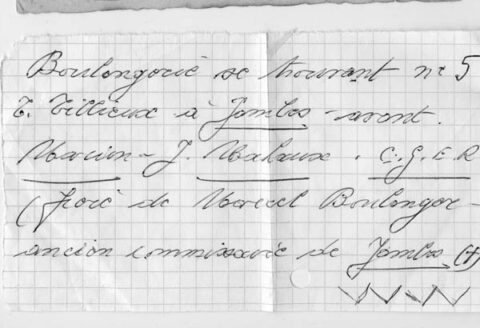 Boulangerie se trouvant n° 5
T. Tillieux à Jambes - avant.
Marian - J. Malaux . C.G.E.R
(frère de Marcel Boulanger -
ancien commissaire de Jambes (+)